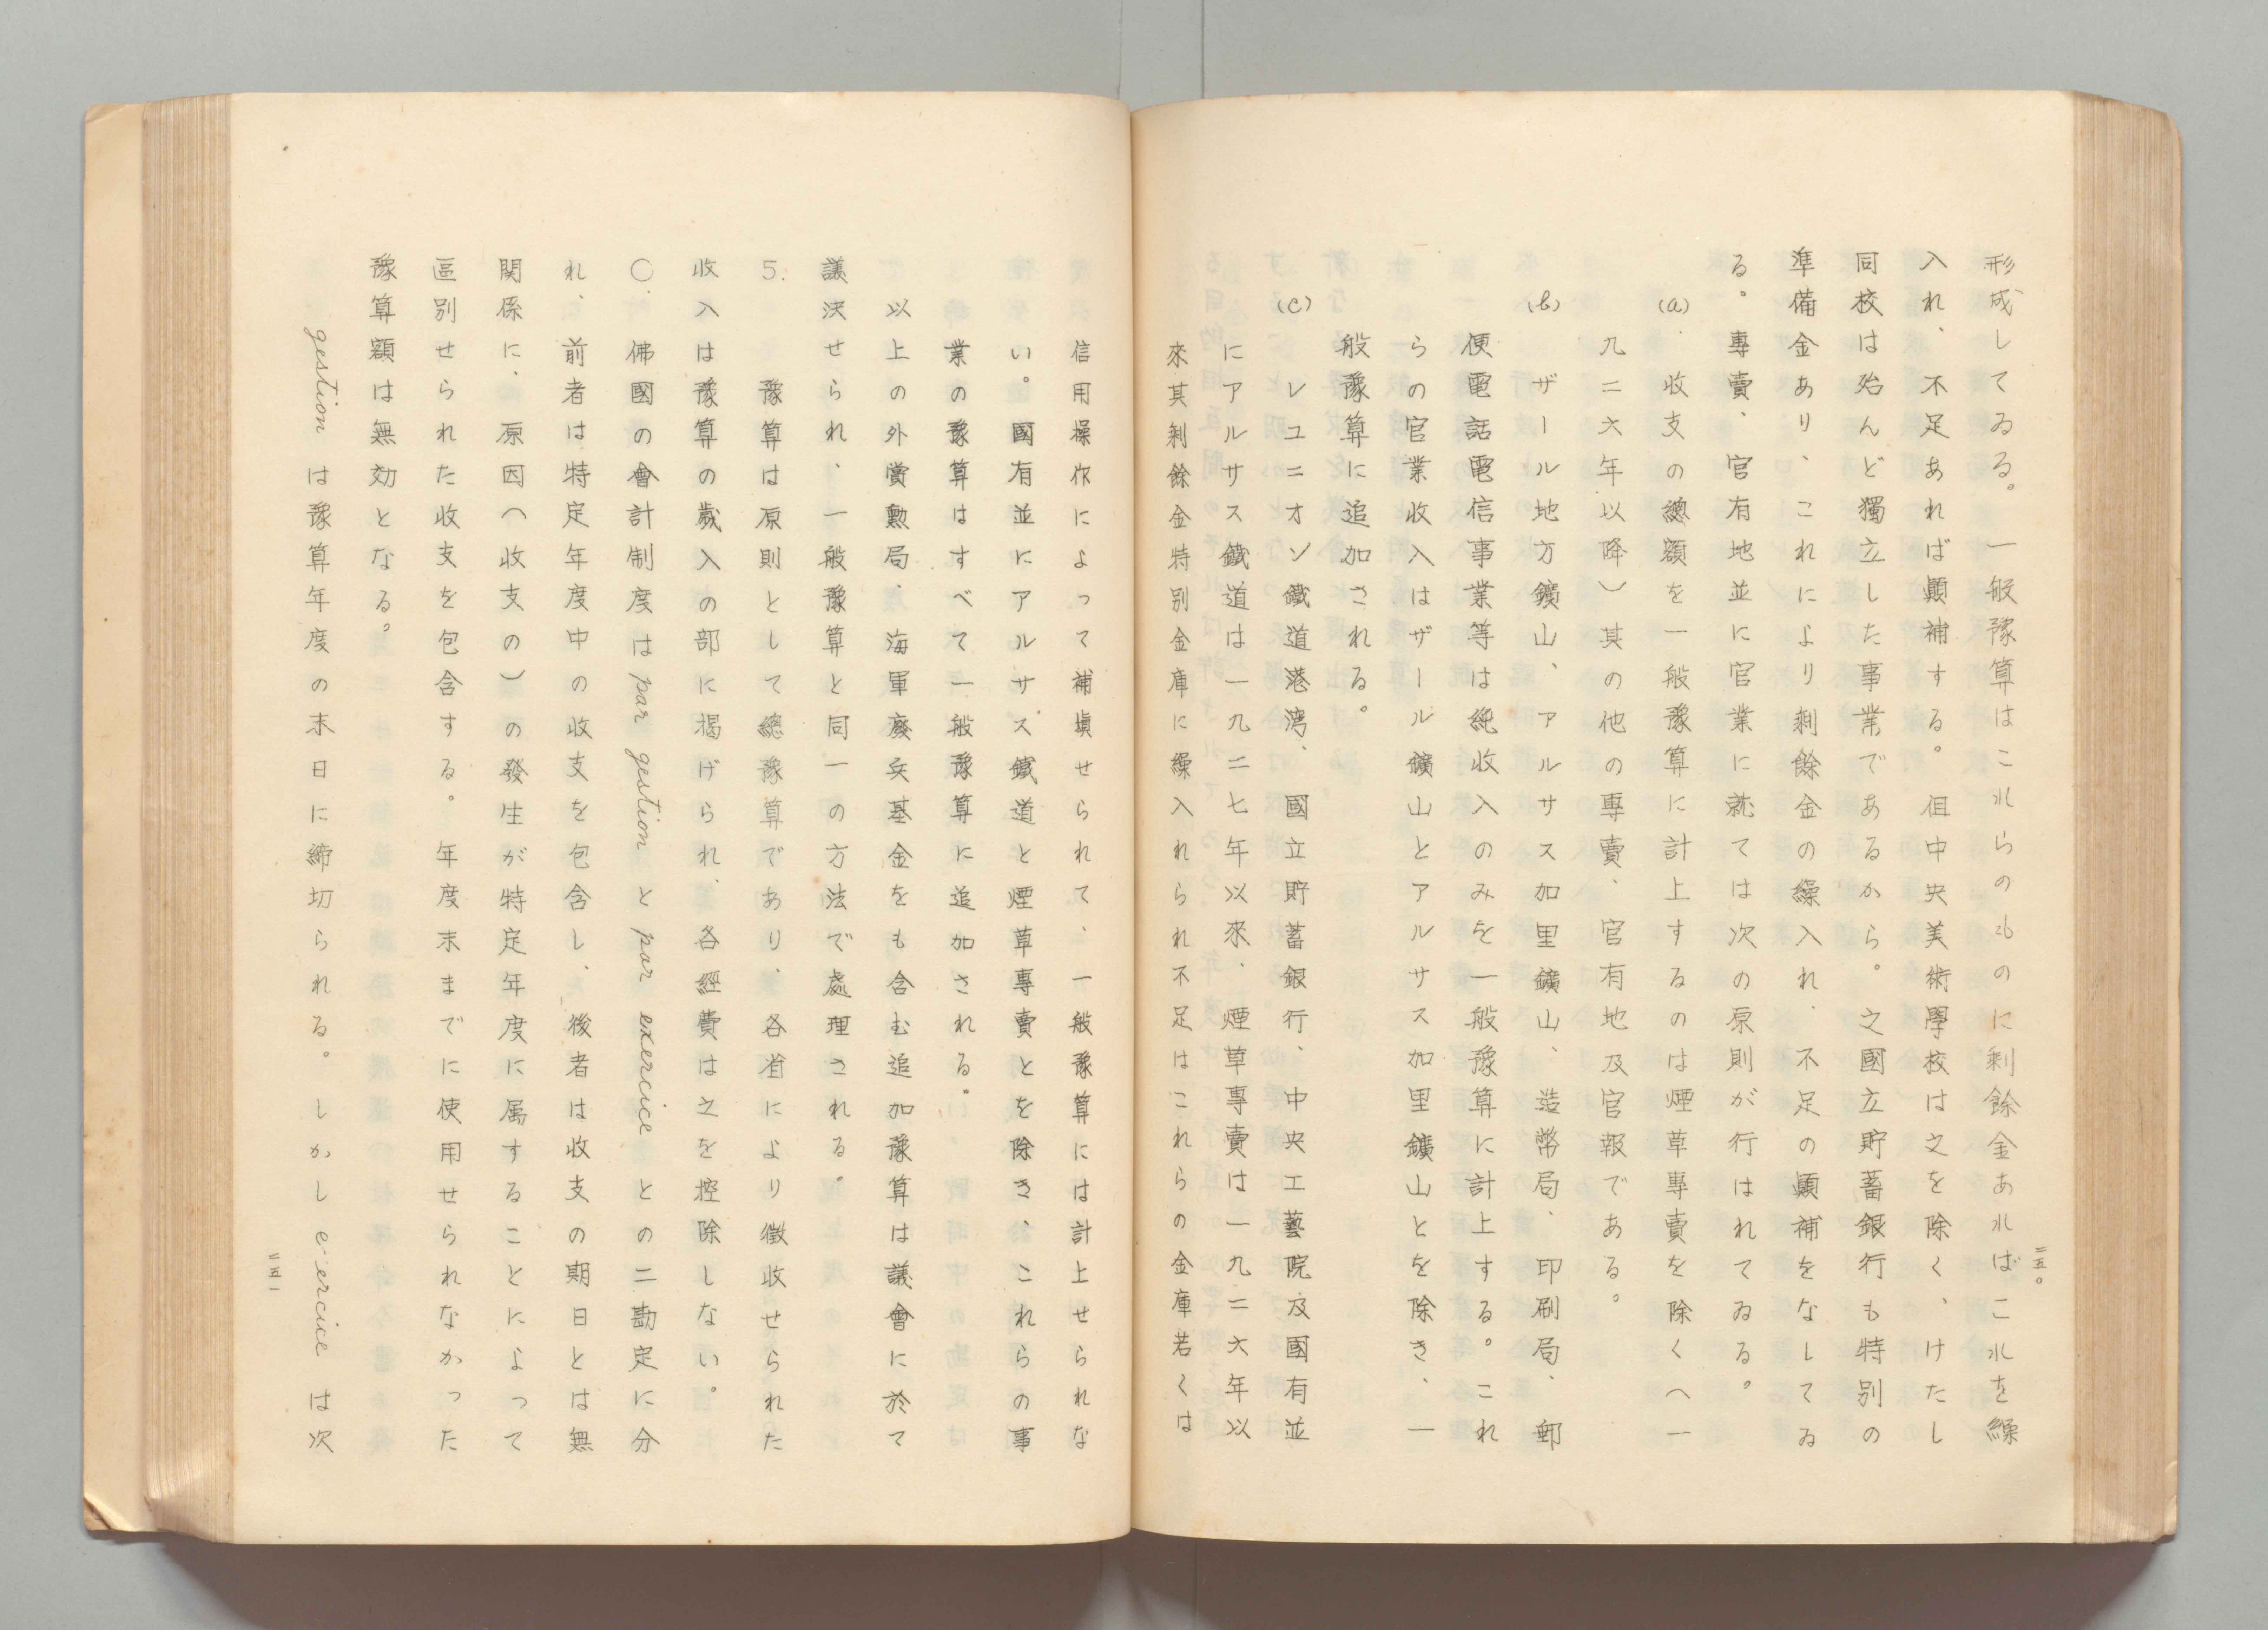 形成してゐる。一般豫算はこれらのものに剰餘金あればこれを繰
入れ、不足あれば顚補する。但中央美術學校は之を除く、けたし
同校は殆んど獨立した事業であるから。之國立貯蓄銀行も特別の
準備金あり、これにより剰餘金の繰入れ、不足の顚補をなしてゐ
る。專賣、官有地並に官業に就ては次の原則が行はれてゐる。
(a).收支の總額を一般豫算に計上するのは煙草專賣を除く(一
九二六年以降)其の他の專賣、官有地及官報である。
(b) ザール地方鑛山、アルサス加里鑛山、造幣局、印刷局、郵
便電話電信事業等は純收入のみを一般豫算に計上する。これ
らの官業收入はザール鑛山とアルサス加里鑛山とを除き、一
般豫算に追加される。
(c) レユニオン鐵道港湾、國立貯蓄銀行、中央工藝院及國有並
にアルサス鐵道は一九二七年以來、煙草專賣は一九二六年以
來其剰餘金特別金庫に繰入れられ不足はこれらの金庫若くは
二五〇
信用操作によって補塡せられて、一般豫算には計上せられな
い。國有並にアルサス鐵道と煙草專賣とを除き、これらの事
業の豫算はすべて一般豫算に追加される。
以上の外賞勲局、海軍廢兵基金をも含む追加豫算は議會に於て
議決せられ、一般豫算と同一の方法で處理される。
5. 豫算は原則として總豫算であり、各省により徵收せられた
收入は豫算の歲入の部に揭げられ、各經費は之を控除しない。
〇. 佛國の會計制度は par gestion と par exercice との二勘定に分
れ、前者は特定年度中の收支を包含し、後者は收支の期日とは無
関係に、原因(收支の)の發生が特定年度に属することによって
區別せられた收支を包含する。年度末までに使用せられなかった
豫算額は無効となる。
gestion は豫算年度の末日に締切られる。しかし e-ercice は次
二五一